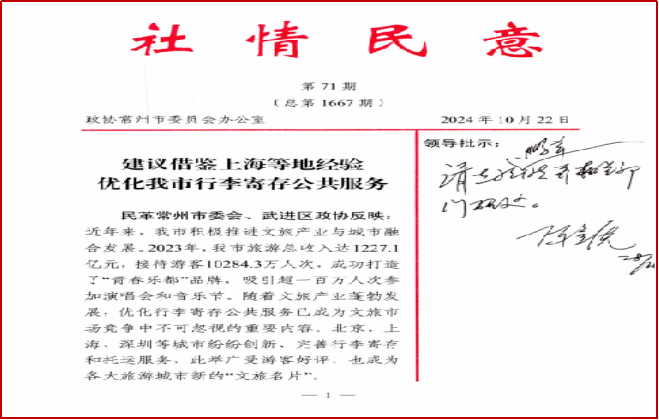 社情民意
第71期
（总第1667期）
政协常州市委员会办公室 2024年10月22日
建议借鉴上海等地经验
优化我市行李寄存公共服务
民革常州市委会、武进区政协反映：
近年来，我市积极推进文旅产业与城市融
合发展。2023年，我市旅游总收入达1227.1
亿元，接待游客10284.3万人次，成功打造
了“青春乐都”品牌，吸引超一百万人次参
加演唱会和音乐节。随着文旅产业蓬勃发
展，优化行李寄存公共服务已成为文旅市
场竞争中不可忽视的重要内容。北京、上
海、深圳等城市纷纷创新、完善行李寄存
和托运服务，此举广受游客好评，也成为
各大旅游城市新的“文旅名片”。
领导批示：
— 1 —